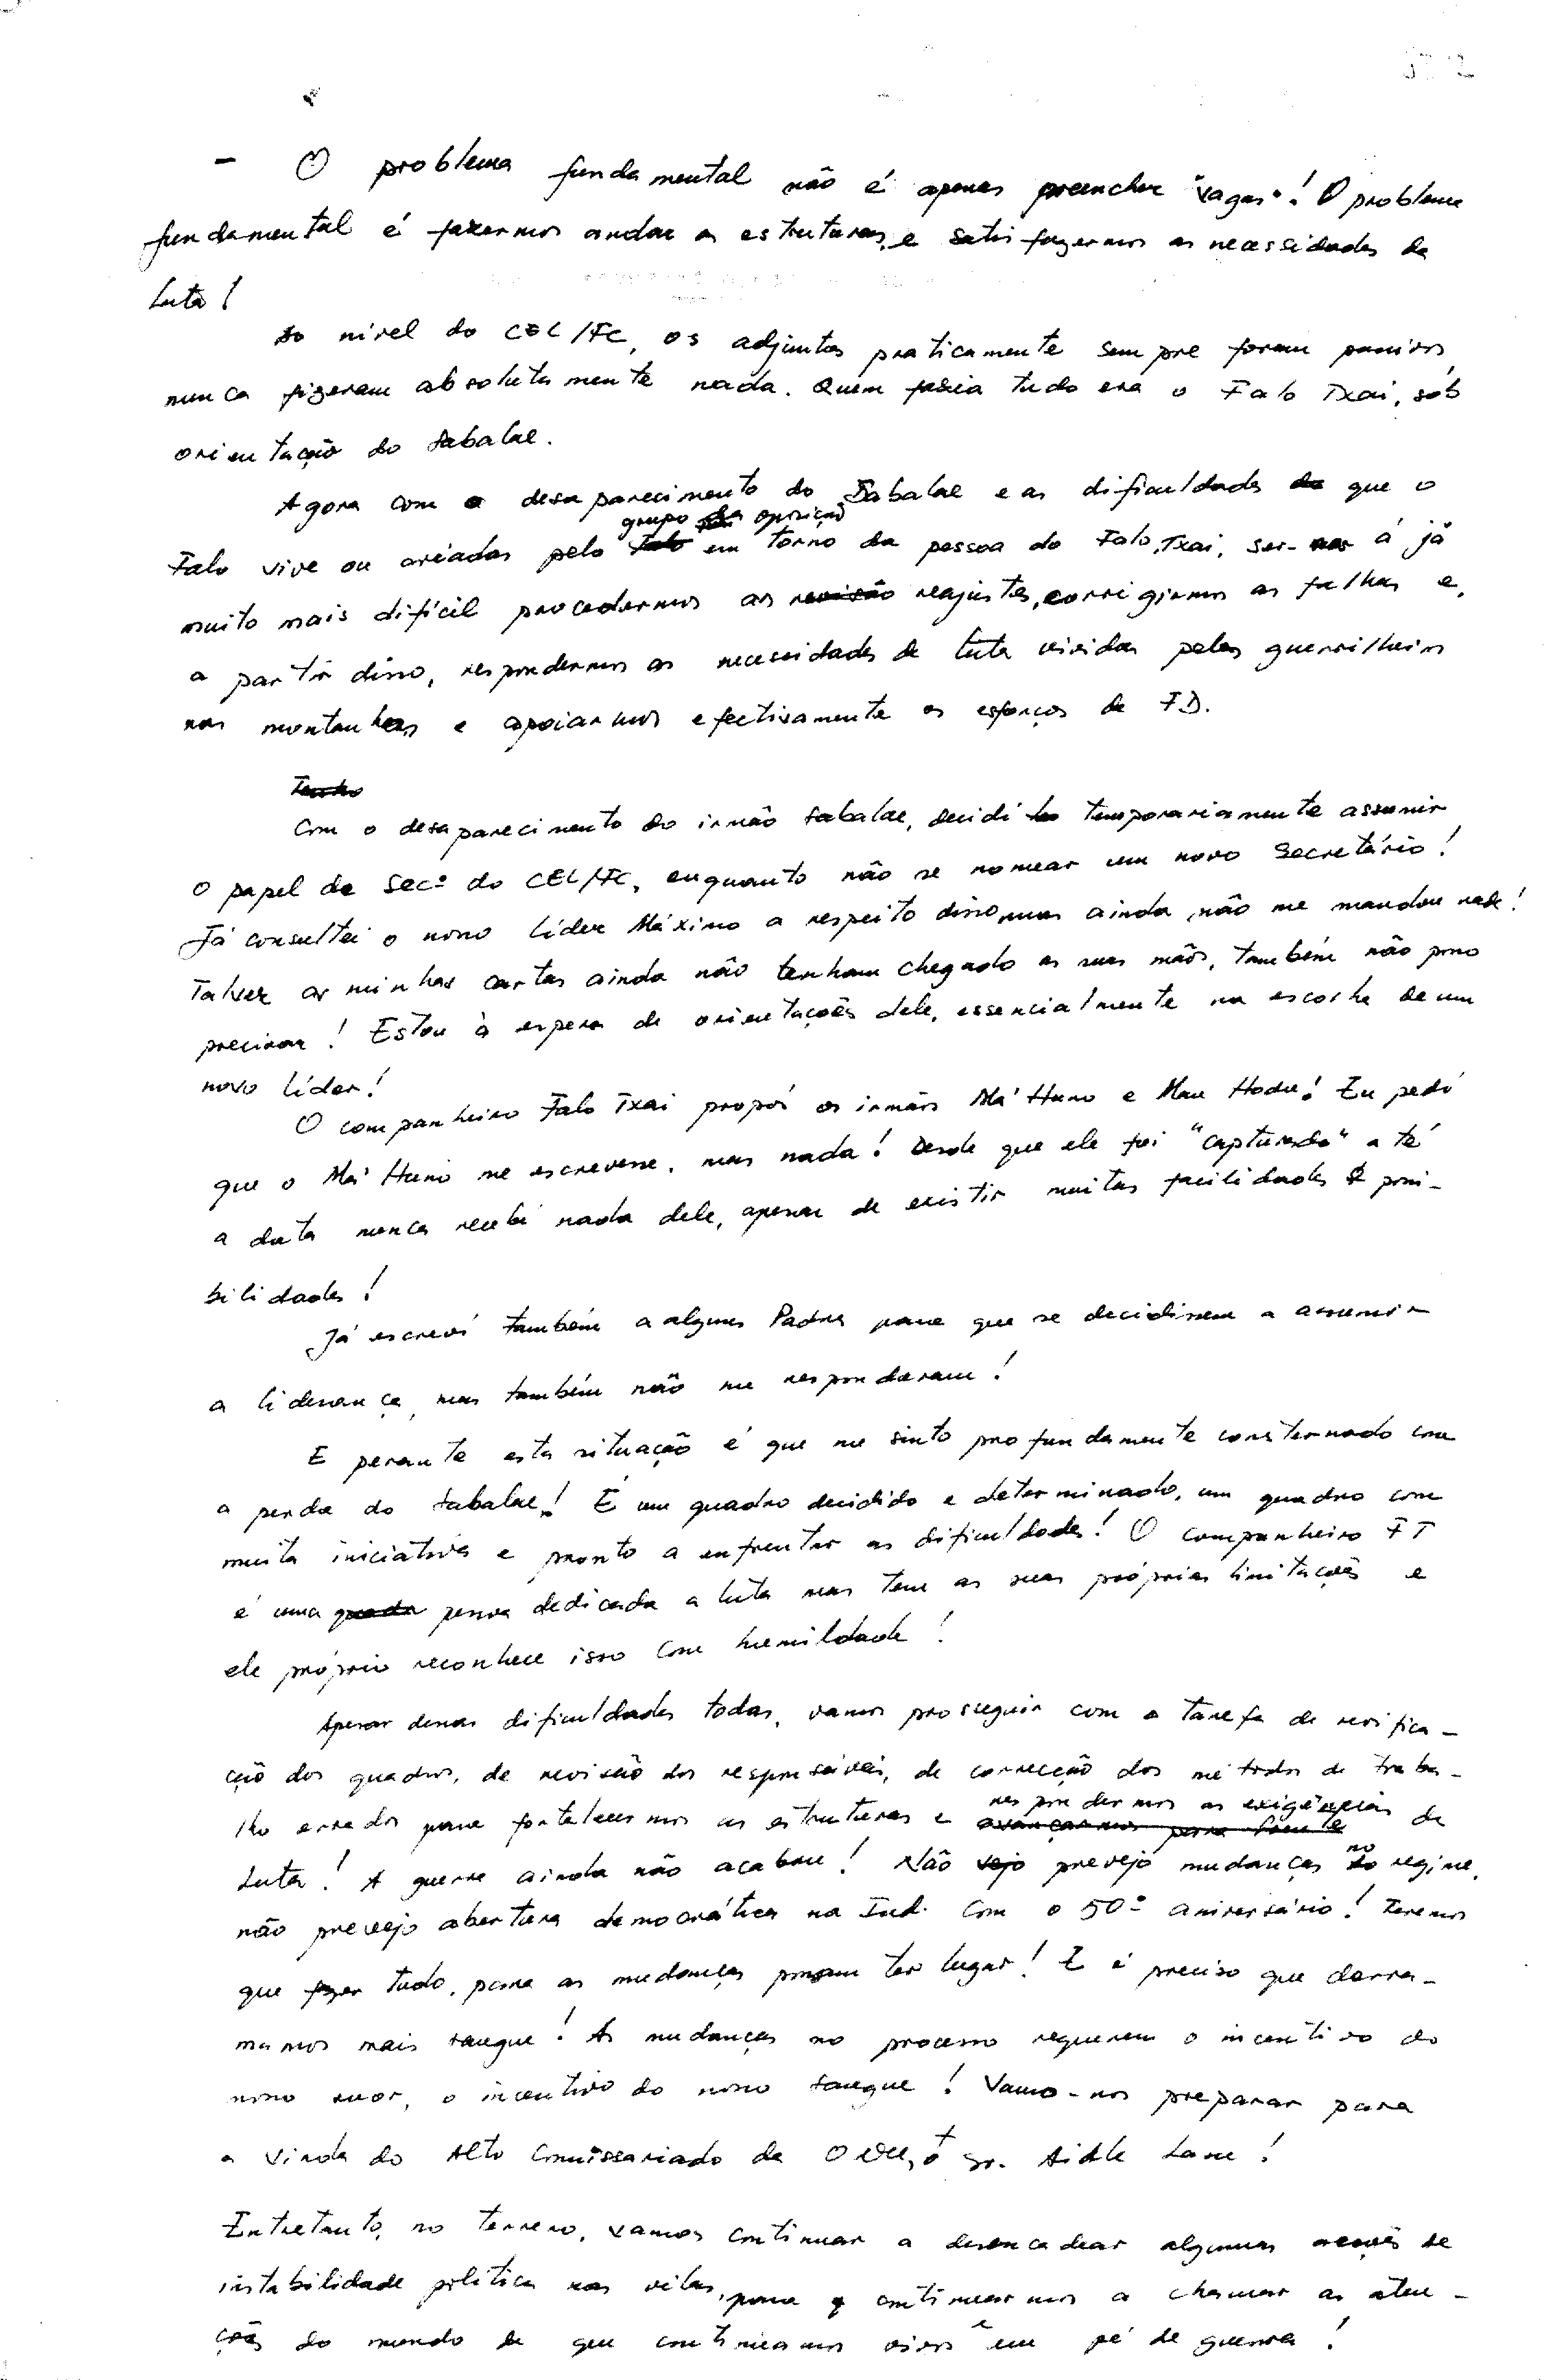 - O problema fundamental não é apenas preencher "vagas"! O problema
fundamental é fazermos andar as estruturas, e satisfazermos as necessidades da
Luta!
Ao nível do CEL/FC, os adjuntos praticamente sempre foram passivos,
nunca fizeram absolutamente nada. Quem fazia tudo era o Falo Txai, sob
orientação do Sabalae.
Agora com o desaparecimento do Sabalae e as dificuldades que o
grupo da oposição
Falo vive ou criadas pelo em torno da pessoa do Falo Txai, ser-nos-á já
muito mais difícil procedermos aos revisão reajustes, corrigirmos as falhas e,
a partir disso, respondermos as necessidades de luta vividas pelos guerrilheiros
nas montanhas e apoiarmos efectivamente os esforços da FD.
Tenho
Com o desaparecimento do irmão Sabalae, decidi temporariamente assumir
O papel de Secº do CEL/FC, enquanto não se nomear um novo Secretário!
Já consultei o novo Líder Máximo a respeito disso, mas ainda não me mandou nada!
Talvez as minhas cartas ainda não tenham chegado as suas mãos, também não posso
precisar! Estou à espera de orientações dele, essencialmente na escolha de um
novo líder!
O companheiro Falo Txai propôs os irmãos Má Huno e Mau Hodu! Eu pedi
que o Má Huno me escrevesse, mas nada! Desde que ele foi "capturado" até
a data nunca recebi nada dele, apesar de existir muitas facilidades e possi-
bilidades!
Já escrevi também a alguns Padres para que se decidissem a assumir
a liderança, mas também não me responderam!
E perante esta situação é que me sinto profundamente consternado com
a perda do Sabalae! É um quadro decidido e determinado, um quadro com
muita iniciativa e pronto a enfrentar as dificuldades! O companheiro FT
é uma pessoa dedicada a luta mas tem as suas próprias limitações e
ele próprio reconhece isso com humildade!
Apesar dessas dificuldades todas, vamos prosseguir com a tarefa de verifica-
ção dos quadros, de revisão dos responsáveis, de correcção dos métodos de traba-
respondermos as exigências
lho errados para fortalecermos as estruturas e avançarmos para frente da
no
Luta! A guerra ainda não acabou! Não vejo prevejo mudanças do regime,
não prevejo abertura democrática na Ind. com o 50º aniversário! Teremos
que fazer tudo, para as mudanças possam ter lugar! E é preciso que derra-
mamos mais sangue! As mudanças no processo requerem o incentivo do
nosso suor, o incentivo do nosso sangue! Vamo-nos preparar para
a vinda do Alto Comissariado da ONU, o Sr. Aiala Lasso!
Entretanto, no terreno, vamos continuar a desencadear algumas acções de
instabilidade política nas vilas, para continuarmos a chamar as aten-
ções do mundo de que continuamos vivos e em pé de guerra!